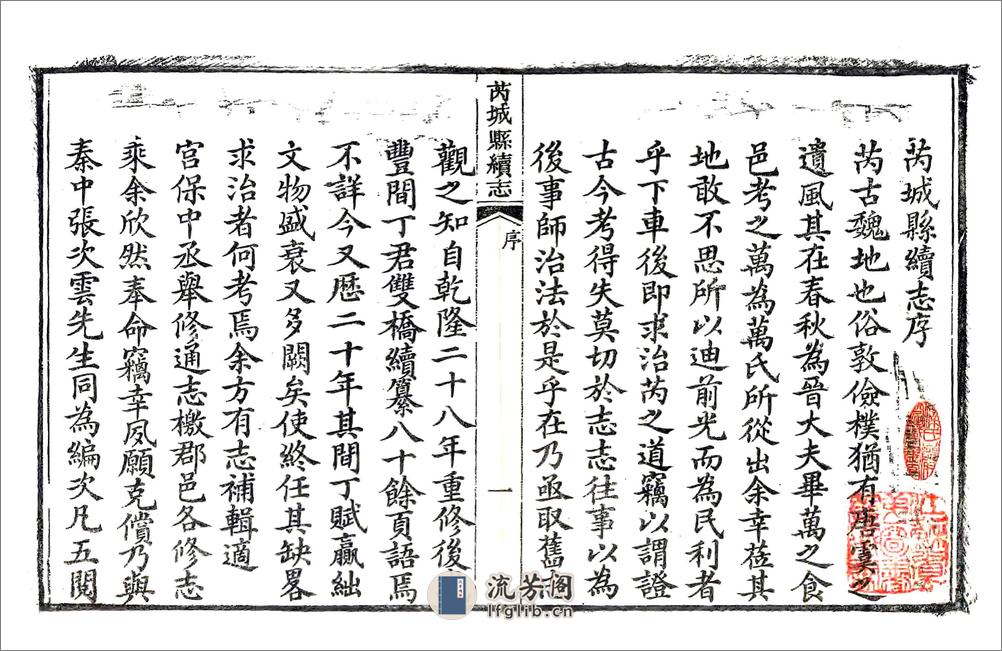 芮城縣續志序
芮古魏地也俗敦儉樸猶有唐虞之
遺風其在春秋為晉大夫畢萬之食
邑考之萬為萬氏所從出余幸蒞其
地敢不思所以迪前光而為民利者
乎下車後即求治芮之道竊以謂證
古今考得失莫切於志志往事以為
後事師治法於是乎在乃亟取舊
芮城縣續志
序
一
觀之知自乾隆二十八年重修後
豐間丁君雙橋續纂八十餘頁語焉
不詳今又歷二十年其間丁賦贏絀
文物盛衰又多闕矣使終任其缺畧
求治者何考焉余方有志補輯適
宮保中丞舉修通志檄郡邑各修志
乘余欣然奉命竊幸夙願克償乃與
秦中張次雲先生同為編次凡五閱
流芳阁
lfglib.cn